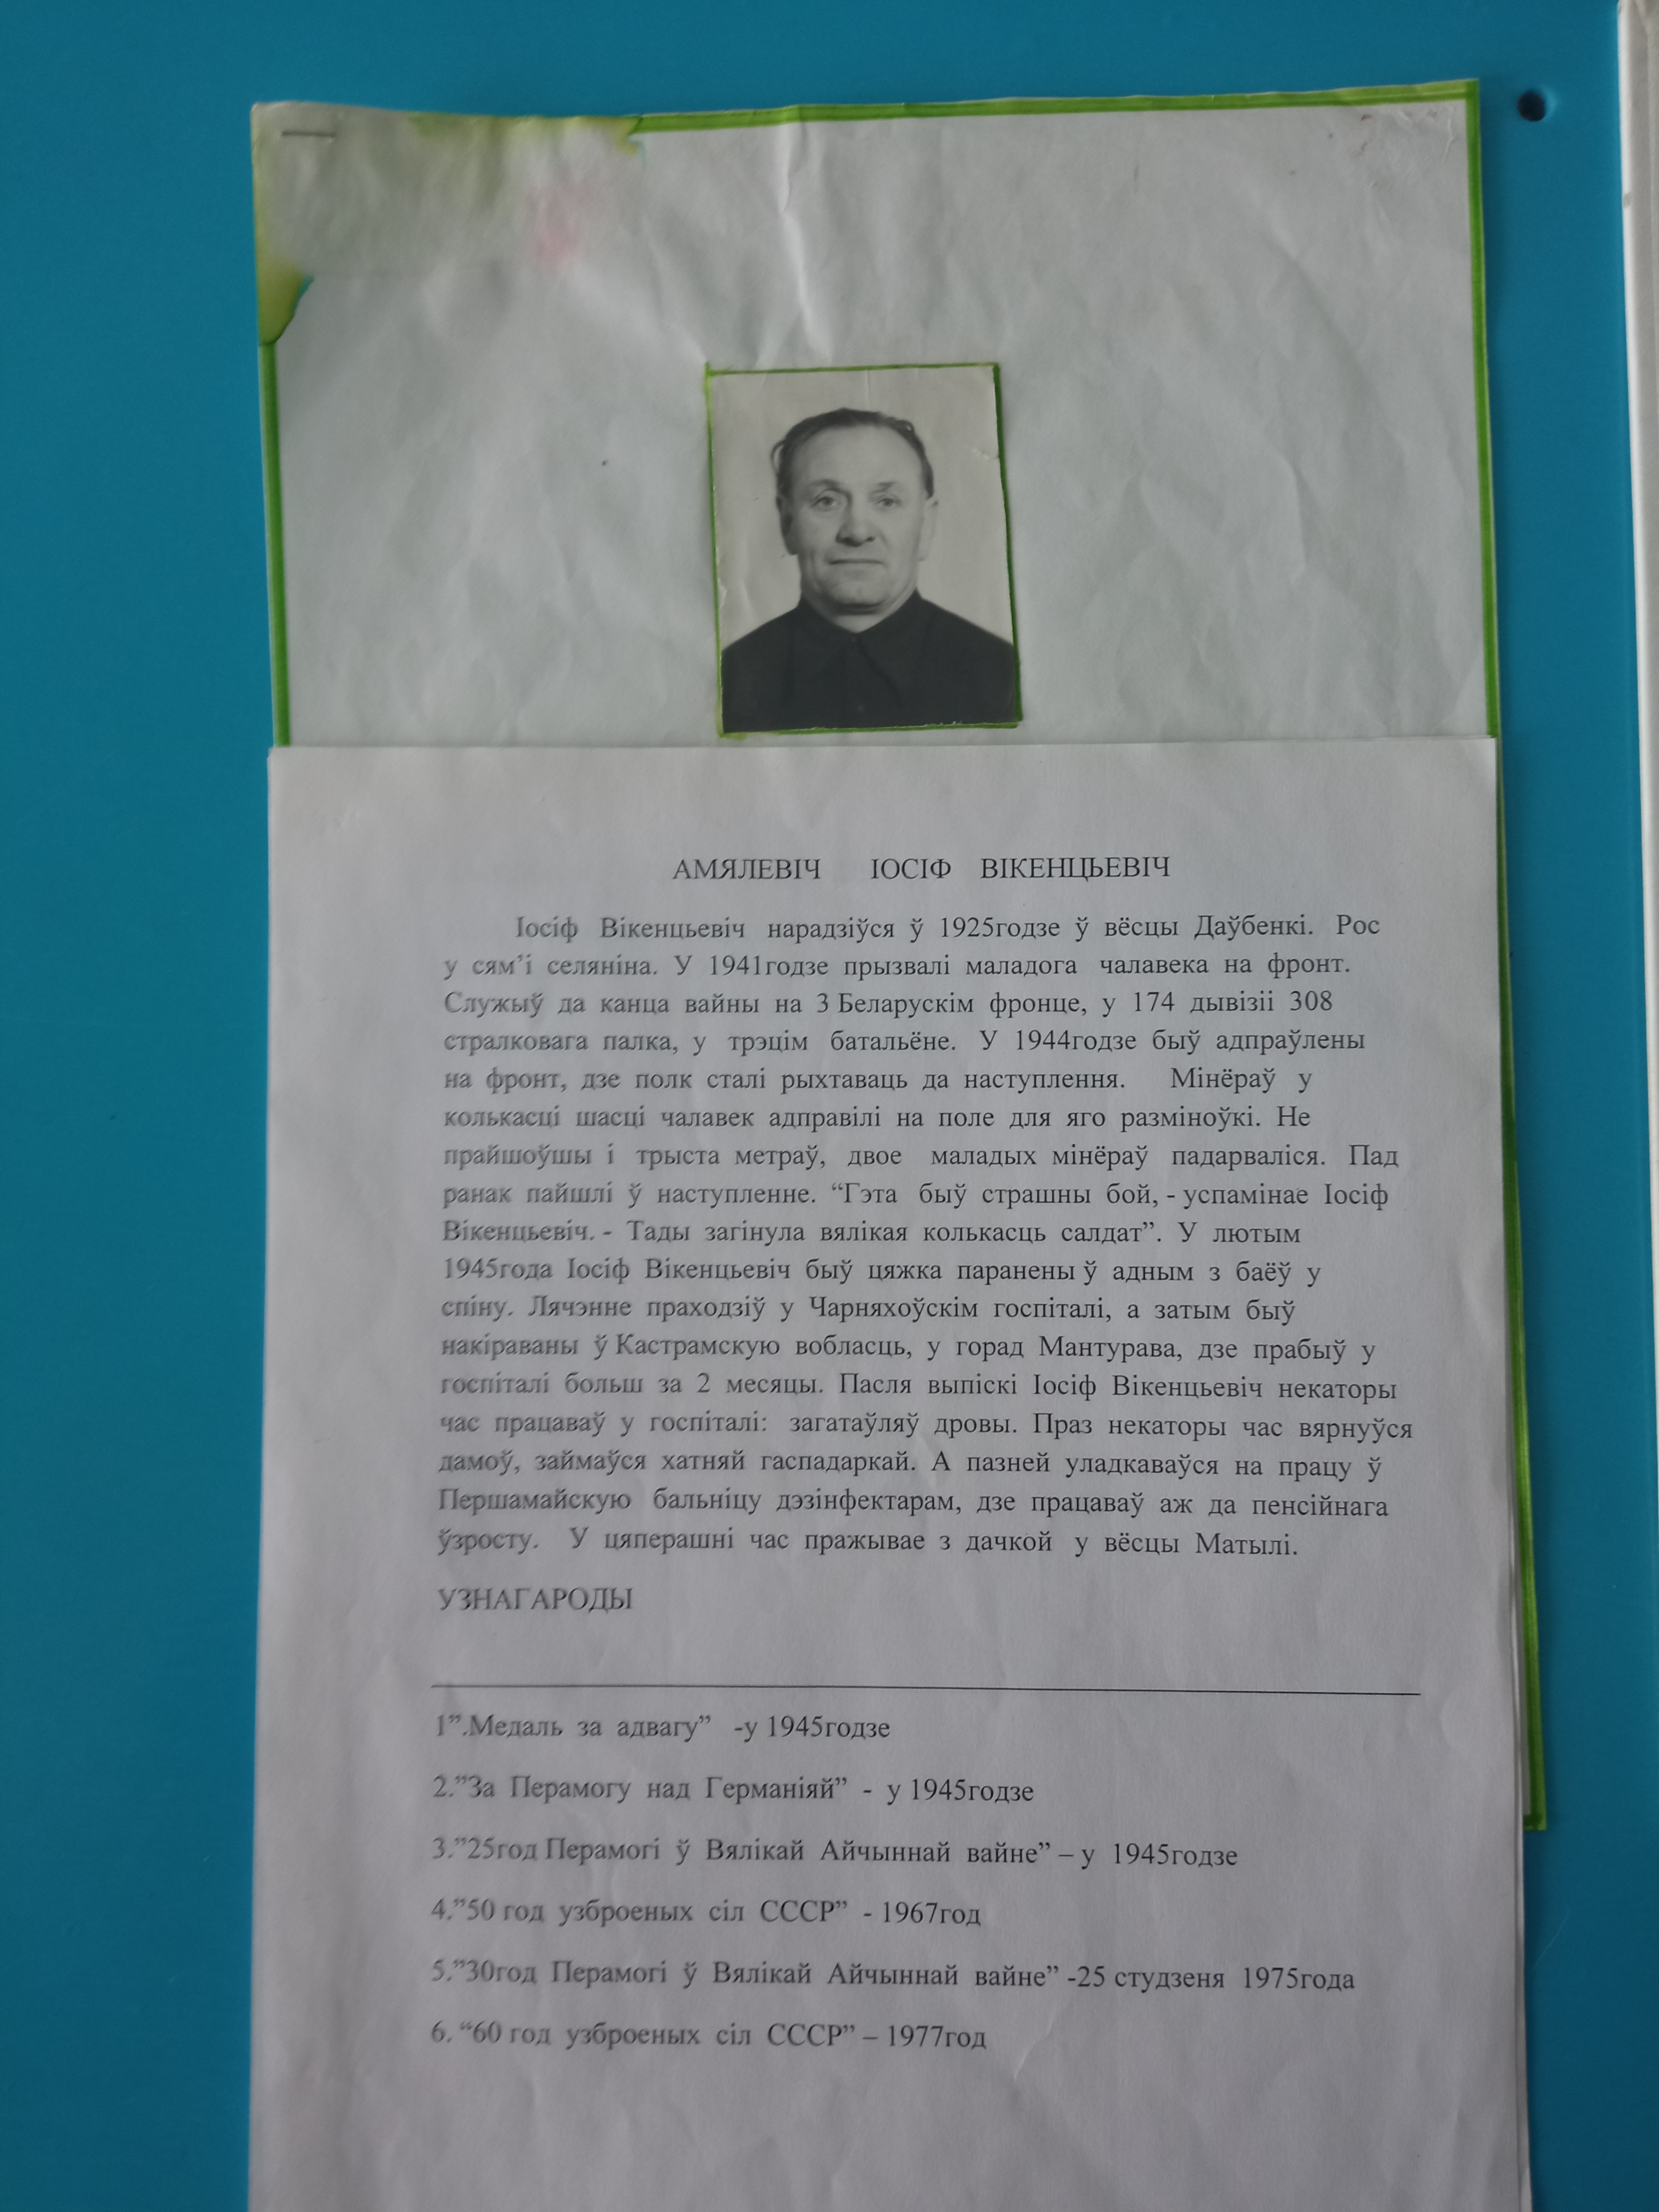 АМЯЛЕВІЧ ІОСІФ ВІКЕНЦЬЕВІЧ
Іосіф Вікенцьевіч нарадзіўся ў 1925годзе ў вёсцы Даўбенкі. Рос
у сям’і селяніна. У 1941годзе прызвалі маладога чалавека на фронт.
Служыў да канца вайны на 3 Беларускім фронце, у 174 дывізіі 308
стралковага палка, у трэцім батальёне. У 1944годзе быў адпраўлены
на фронт, дзе полк сталі рыхтаваць да наступлення. Мінёраў у
колькасці шасці чалавек адправілі на поле для яго разміноўкі. Не
прайшоўшы і трыста метраў, двое маладых мінёраў падарваліся. Пад
ранак пайшлі ў наступленне. “Гэта быў страшны бой, - успамінае Іосіф
Вікенцьевіч. - Тады загінула вялікая колькасць салдат”. У лютым
1945года Іосіф Вікенцьевіч быў цяжка паранены ў адным з баёў у
спіну. Лячэнне праходзіў у Чарняхоўскім госпіталі, а затым быў
накіраваны ў Кастрамскую вобласць, у горад Мантурава, дзе прабыў у
госпіталі больш за 2 месяцы. Пасля выпіскі Іосіф Вікенцьевіч некаторы
час працаваў у госпіталі: загатаўляў дровы. Праз некаторы час вярнуўся
дамоў, займаўся хатняй гаспадаркай. А пазней уладкаваўся на працу ў
Першамайскую бальніцу дэзінфектарам, дзе працаваў аж да пенсійнага
ўзросту. У цяперашні час пражывае з дачкой у вёсцы Матылі.
УЗНАГАРОДЫ
1”.Медаль за адвагу” -у 1945годзе
2.”За Перамогу над Германіяй” - у 1945годзе
3.”25год Перамогі ў Вялікай Айчыннай вайне” – у 1945годзе
4.”50 год узброеных сіл СССР” - 1967год
5.”30год Перамогі ў Вялікай Айчыннай вайне” -25 студзеня 1975года
6. “60 год узброеных сіл СССР” – 1977год